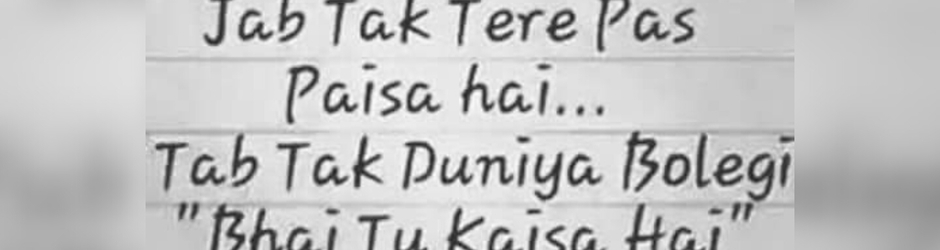 Jab Tak Tere Pas
Paisa hai...
Tab Tak Duniya Bolegi
"Bhai Tu Kaisa Hai"